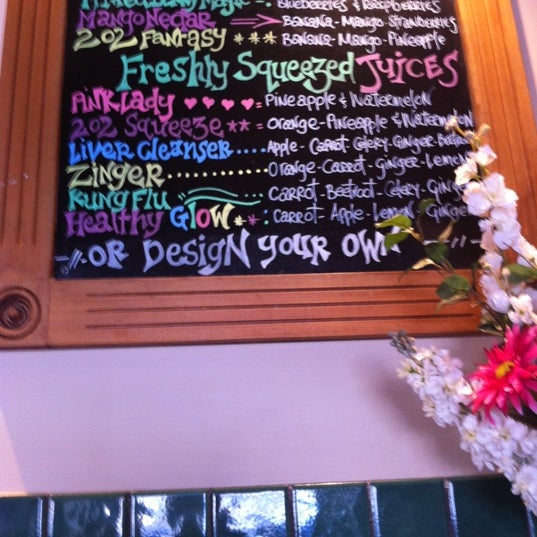 Magic -: Blueberries & Raspberries
Mango Nectar : Banana - Mango - Strawberries
202 Fantasy *** : Banana - Mango - Pineapple
Freshly Squeezed Juices
Pink Lady ♥♥♥♥ = Pineapple & Watermelon
202 Squeeze ** = Orange - Pineapple & Watermelon
Liver Cleanser ..... Apple - Carrot - Celery - Ginger -
Zinger ............ Orange - Carrot - Ginger - Lemon
Kung Flu : Carrot - Beetroot - Celery - Ginger
Healthy Glow ** : Carrot - Apple - Lemon - Ginger
-//- OR Design your own -//-